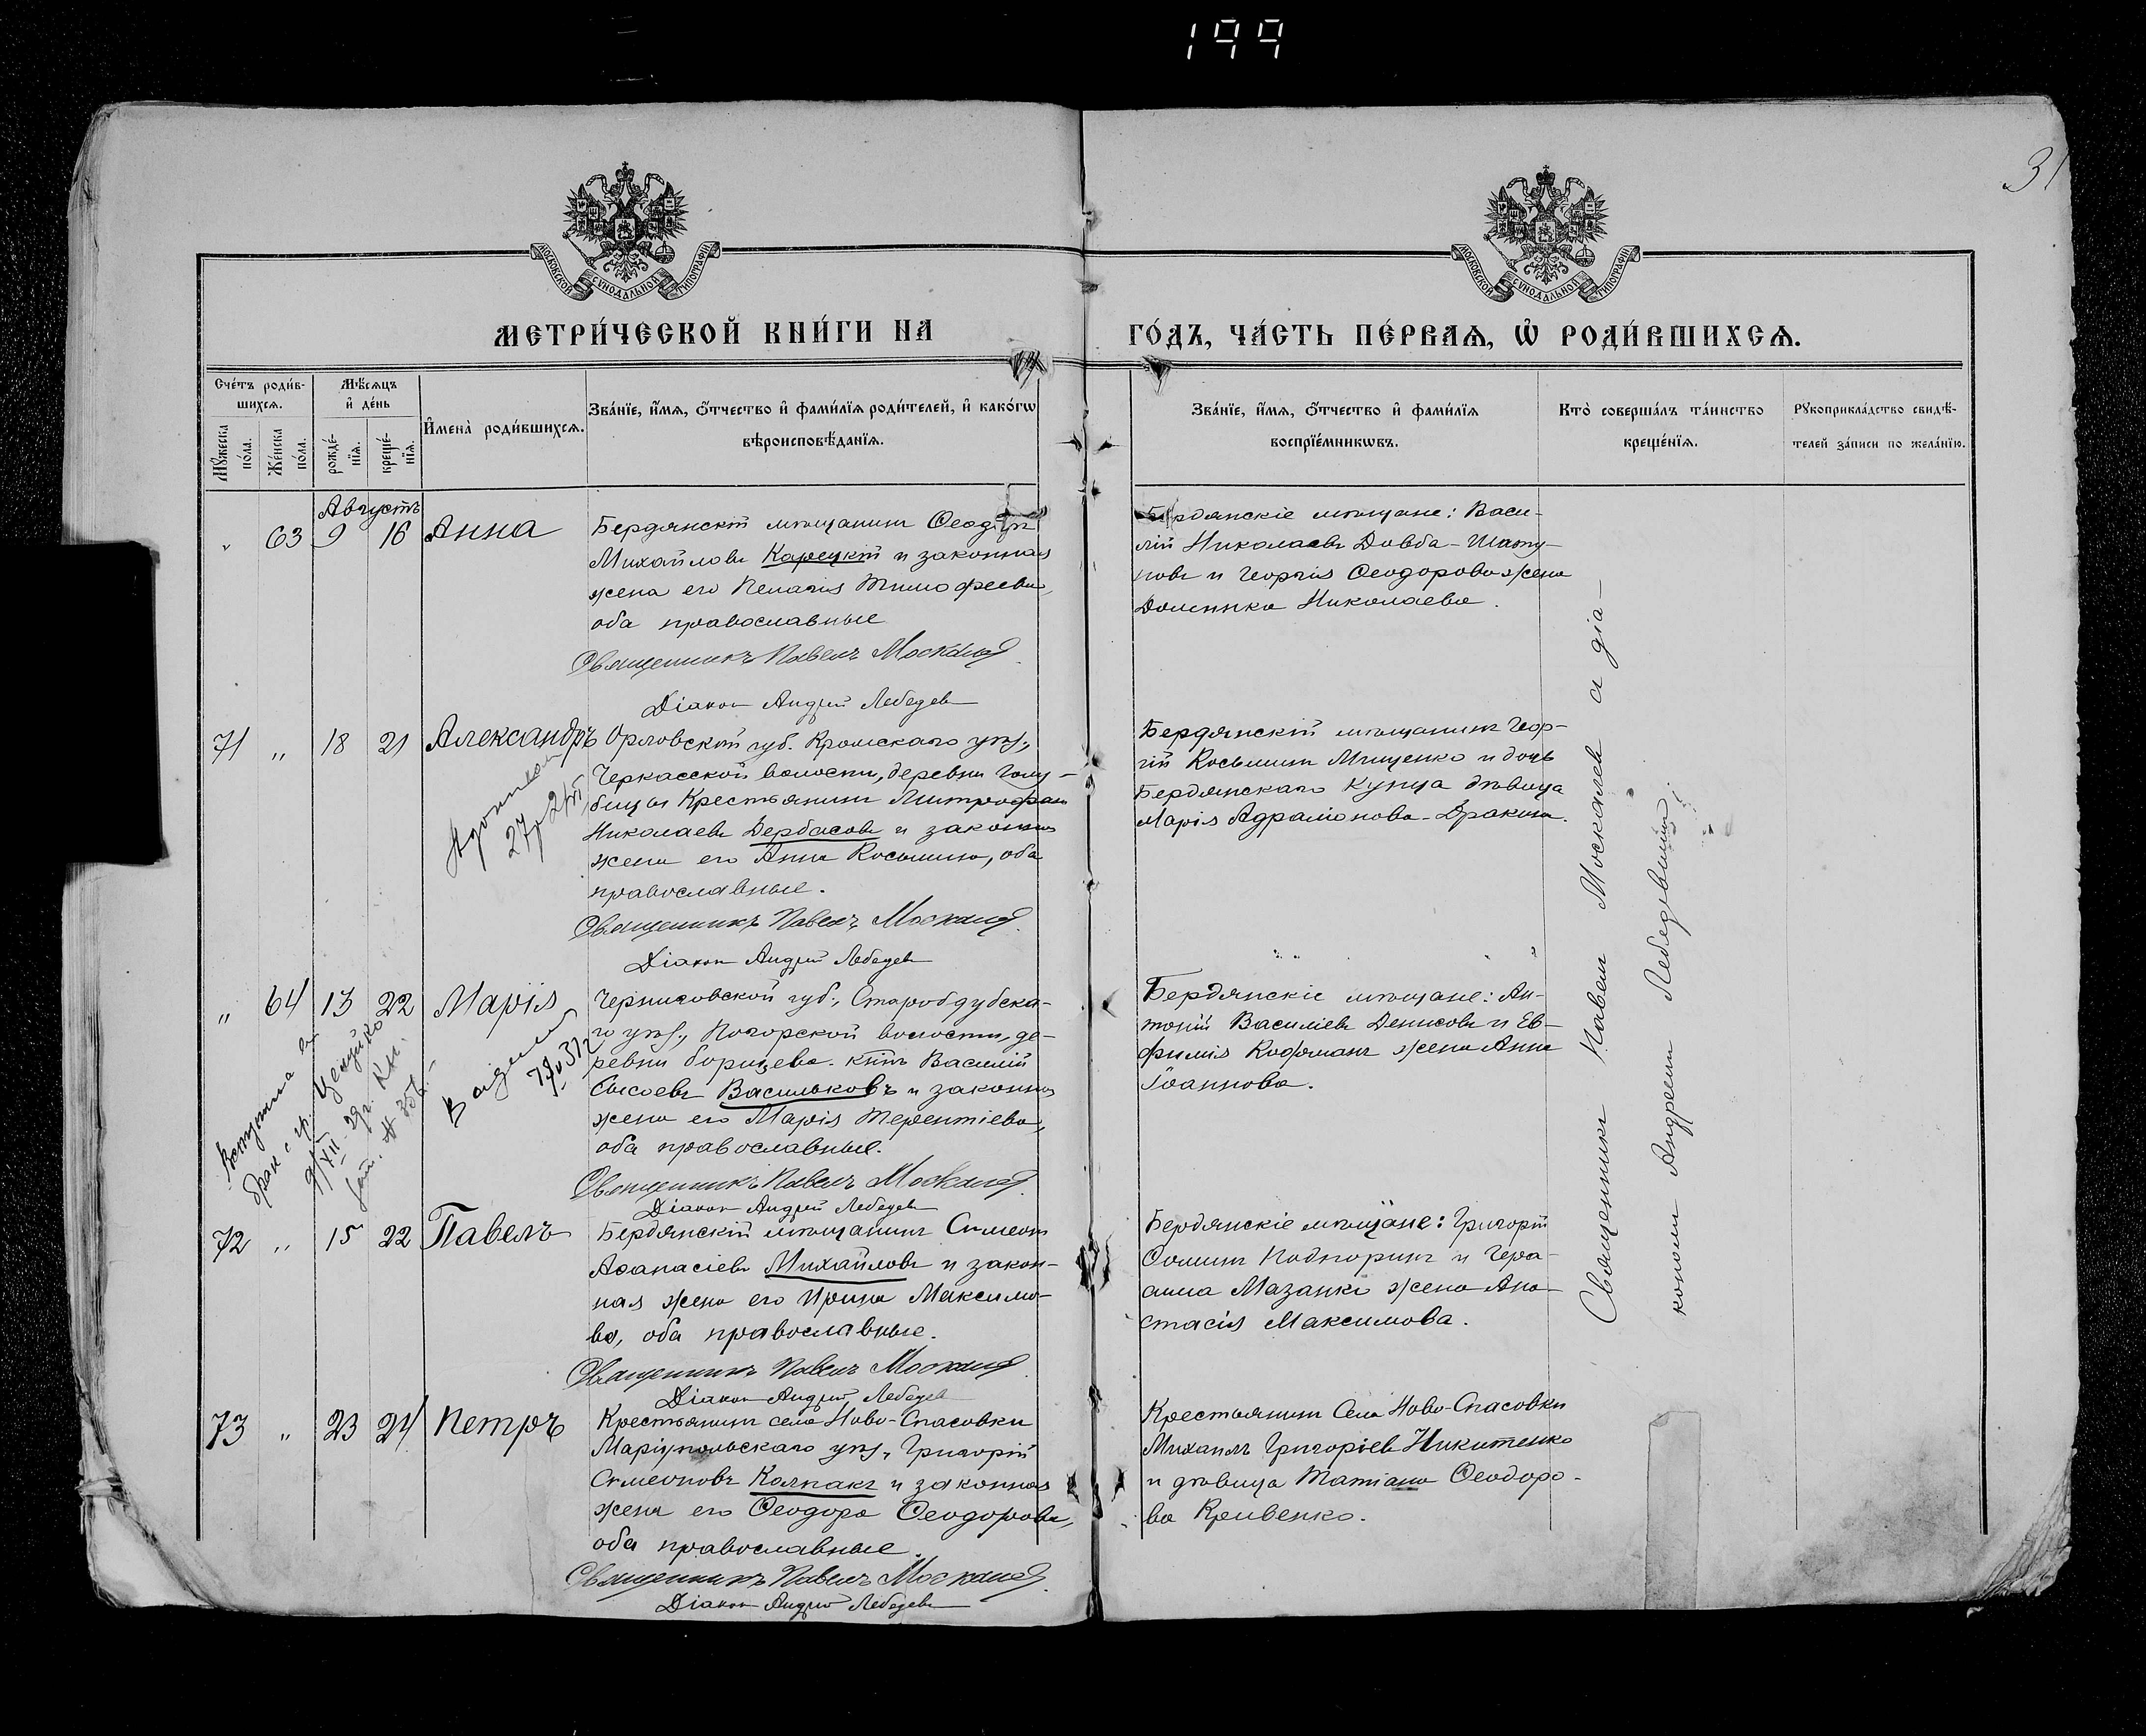 199
31
МОСКОВСКОЙ СѴНОДАЛЬНОЙ ТИПОГРАФІИ
МОСКОВСКОЙ СѴНОДАЛЬНОЙ ТИПОГРАФІИ
МЕТРИ́ЧЕСКОЙ КНИ́ГИ НА
ГО́ДЪ, ЧА́СТЬ ПЕ́РВАѦ, Ѡ҆ РОДИ́ВШИХСѦ.
Сче́тъ роди́в-
шихсѧ.
Мꙋ́жеска по́ла.
Же́нска по́ла.
Мѣ́сѧцъ
и҆ де́нь
рожде́-
нїѧ.
креще́-
нїѧ.
И҆мена̀ роди́вшихсѧ.
Зва́нїе, и҆́мѧ, ѻ҆́тчество и҆ фами́лїѧ роди́телей, и҆ како́гѡ
вѣроисповѣ́данїѧ.
Зва́нїе, и҆́мѧ, ѻ҆́тчество и҆ фами́лїѧ
воспрїе́мникѡвъ.
Кто̀ соверша́лъ та́инство
креще́нїѧ.
Рꙋкоприкла́дство свидѣ́-
телей за́писи по жела́нїю.
Августъ
" 63 9 16 Анна
Бердянскій мѣщанинъ Ѳеодоръ
Михайловъ Карецкій и законная
жена его Пелагія Тимофеева,
оба православные
Священникъ Павелъ Москалев
Діакон Андрей Лебедев
Бердянскіе мѣщане: Васи-
лій Николаевъ Довба-Шату-
новъ и Георгія Ѳеодорова жена
Доминика Николаева.
71 " 18 21 Александръ
Орловской губ. Кромскаго уѣз.,
Черкасской волости, деревни Голу-
бицы Крестьянинъ Митрофан
Николаевъ Дербасовъ и законная
жена его Анна Косьмина, оба
православные.
Священникъ Павелъ Москалев
Діакон Андрей Лебедев
Бердянскій мѣщанинъ Геор-
гій Косьминъ Мищенко и дочь
Бердянскаго Купца дѣвица
Марія Адраміонова-Дракина.
" 64 13 22 Марія
Вступила в
брак с гр. Ценцйко
9/XII-29г.
№ 356.-
Черниговской губ., Стародубска-
го уѣз., Погорской волости, де-
ревни Борщева. к-нъ Василій
Сысоевъ Васильковъ и законная
жена его Марія Терентіева,
оба православные.
Священникъ Павелъ Москалев
Діакон Андрей Лебедев
Бердянскіе мѣщане: Ан-
тоній Василіевъ Денисовъ и Ев-
фимія Кофманъ жена Анна
Іоаннова.
72 " 15 22 Павелъ
Бердянскій мѣщанинъ Симеон
Аѳанасіевъ Михайловъ и закон-
ная жена его Ирина Максимо-
ва, оба православные.
Священникъ Павелъ Москалев
Діакон Андрей Лебедев
Бердянскіе мѣщане: Григорій
Ѳоминъ Подпоринъ и Гера-
сима Мазанки жена Ана-
стасія Максимова.
73 " 23 24 Петръ
Крестьянинъ села Ново-Спасовки
Маріупольскаго уѣз., Григорій
Симеоновъ Колпакъ и законная
жена его Ѳеодора Ѳеодорова,
оба православные.
Священникъ Павелъ Москалев
Діакон Андрей Лебедевъ
Крестьянинъ Села Ново-Спасовки
Михаилъ Григоріевъ Никитенко
и дѣвица Татіана Ѳеодоро-
ва Кривенко.
Священникъ Павелъ Москалевъ с діа-
кономъ Андреемъ Лебедевымъ.